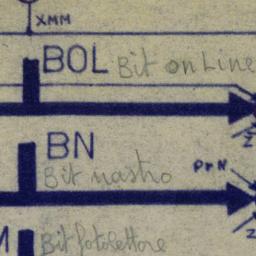 XMM
BOL Bit on Line
Z
BN
PrN
Bit nastro
Z
M Bit fotolettore